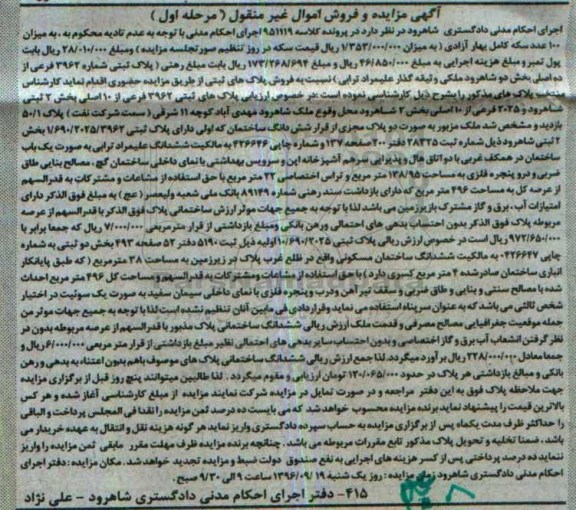 آگهی مزایده و فروش اموال غیر منقول ( مرحله اول )
اجرای احکام مدنی دادگستری شاهرود در نظر دارد در پرونده کلاسه ۹۵۱۱۱۹ اجرای احکام مدنی با توجه به عدم تادیه محکوم به ، به میزان
۱۰۰ عدد سکه کامل بهار آزادی ( به میزان ۱/۳۵۳/۰۰۰/۰۰۰ ریال قیمت سکه در روز تنظیم صورتجلسه مزایده ) ومبلغ ۲۸/۰۱۰/۰۰۰ ریال بابت
پول تمبر و مبلغ هزینه اجرایی به مبلغ ۴۶/۸۵۰/۰۰۰ ریال و مبلغ ۱۷۳/۲۶۸/۶۹۴ ریال بابت مبلغ رهنی ( پلاک ثبتی شماره ۳۹۶۲ فرعی از
ده اصلی بخش دو شاهرود ملکی وثیقه گذار علیمراد ترابی ) نسبت به فروش پلاک های ثبتی از طریق مزایده حضوری اقدام نماید کارشناس
منتخب پلاک های مذکور را بشرح ذیل کارشناسی نموده است :در خصوص ارزیابی پلاک های ثبتی ۳۹۶۲ فرعی از ۱۰ اصلی بخش ۲ ثبتی
شاهرود و ۲۰۲۵ فرعی از ۱۰ اصلی بخش ۲ شاهرود محل وقوع ملک شاهرود مهدی آباد کوچه ۱۱ شرقی ( سمت شرکت نفت ) پلاک ۵۰/۱
بازدید و مشخص شد ملک مزبور به صورت دو پلاک مجزی از قرار شش دانگ ساختمان که اولی دارای پلاک ثبتی ۱/۶۹۰/۲۰۲۵/۳۹۶۲ بخش
۲ ثبتی شاهرود ذیل شماره ثبت ۲۸۳۲۵ دفتر ۲۰۰ صفحه ۱۳۷ و شماره چاپی ۴۲۶۶۴۶ به مالکیت ششدانگ علیمراد ترابی به صورت یک باب
ساختمان در همکف غربی با دو اتاق هال و پذیرایی سرهم آشپزخانه اپن و سرویس بهداشتی با نمای داخلی ساختمان گچ ، مصالح بنایی طاق
ضربی و درو پنجره فلزی به مساحت ۱۳۸/۹۵ متر مربع و تراس اختصاصی ۲۲ متر مربع با حق استفاده از مشاعات و مشترکات به قدرالسهم
از عرصه کل به مساحت ۴۹۶ متر مربع که دارای بازداشت سند رهنی شماره ۸۹۱۴۹ بانک ملی شعبه ولیعصر ( عج ) به مبلغ فوق الذکر دارای
امتیازات آب، برق و گاز مشترک بازیرزمین می باشد لذا با توجه به جمیع جهات موثر ارزش ساختمانی پلاک فوق الذکر با قدرالسهم از عرصه
مربوطه پلاک فوق الذکر بدون احتساب بدهی های احتمالی ورهن بانکی ومبلغ بازداشتی از قرار متر مربعی ۷/۰۰۰/۰۰۰ ریال که جمعا برابر با
۹۷۲/۶۵۰/۰۰۰ ریال است در خصوص ارزش ریالی پلاک ثبتی ۱۰/۶۹۰/۲۰۲۵ اولیه ذیل ثبت ۵۱۹۰ دفتر ۵۲ صفحه ۴۹۳ بخش دو ثبتی به شماره
چاپی ۰۴۲۶۶۴۷ به مالکیت ششدانگ ساختمان مسکونی واقع در ظلع غرب پلاک در زیرزمین به مساحت ۳۸ مترمربع ( که طبق پایانکار
انباری ساختمان صادرشده ۴ متر مربع کسری دارد ) با حق استفاده از مشاعات ومشترکات به قدرالسهم و مساحت کل ۴۹۶ متر مربع احداث
شده با مصالح سنتی و بنایی و طاق ضربی و سقف تیر آهن ودرب وپنجره فلزی با نمای داخلی سیمان سفید به صورت یک سوئیت در اختیار
شخص ثالثی می باشد که به عنوان سرپناه استفاده می نماید وقراردادی فی مابین آنان تنظیم نشده است لذا با توجه به جمیع جهات موثر من
جمله موقعیت جغرافیایی مصالح مصرفی و قدمت ملک ارزش ریالی ششدانگ ساختمانی پلاک مذبور با قدرالسهم از عرصه مربوطه بدون در
نظر گرفتن انشعاب آب برق و گاز اختصاصی وبدون احتساب سایر بدهی های احتمالی نظیر مبلغ بازداشتی از قرار متر مربعی ۶/۰۰۰/۰۰۰ ریال و
جمعا معادل ۲۲۸/۰۰۰/۰۰۰ ریال بر آورد میگردد. لذا جمع ارزش ریالی ششدانگ ساختمانی پلاک های موصوف باهم بدون اعتناء به بدهی و رهن
بانکی و مبالغ بازداشتی هر پلاک در حدود ۱۲۰/۰۶۵/۰۰۰ تومان ارزیابی و مقوم میگردد . لذا طالبین میتوانند پنج روز قبل از برگزاری مزایده
جهت ملاحظه پلاک فوق به این دفتر مراجعه و در صورت تمایل در مزایده شرکت نمایند مزایده از مبلغ کارشناسی آغاز شده و هر کس
بالاترین قیمت را پیشنهاد نماید برنده مزایده محسوب خواهد شد که می بایست ده درصد ثمن مزایده را نقدا فی المجلس پرداخت و الباقی
را حداکثر ظرف مدت یکماه پس از برگزاری مزایده به حساب سپرده دادگستری واریز نماید هر گونه هزینه نقل و انتقال به عهده خریدار می
باشد ، ضمنا تخلیه و تحویل پلاک مذکور تابع مقررات مربوطه می باشد . چنانچه برنده مزایده ظرف مهلت مقرر مابقی ثمن مزایده را واریز
ننماید ده درصد پرداختی پس از کسر هزینه های اجرایی به نفع صندوق دولت ضبط و مزایده تجدید خواهد شد. مکان مزایده : دفتر اجرای
احکام مدنی دادگستری شاهرود زمان مزایده : روز یک شنبه ۱۳۹۶/۰۹/۱۹ ساعت ۹ الی ۹/۳۰ صبح .
۴۱۵- دفتر اجرای احکام مدنی دادگستری شاهرود - علی نژاد